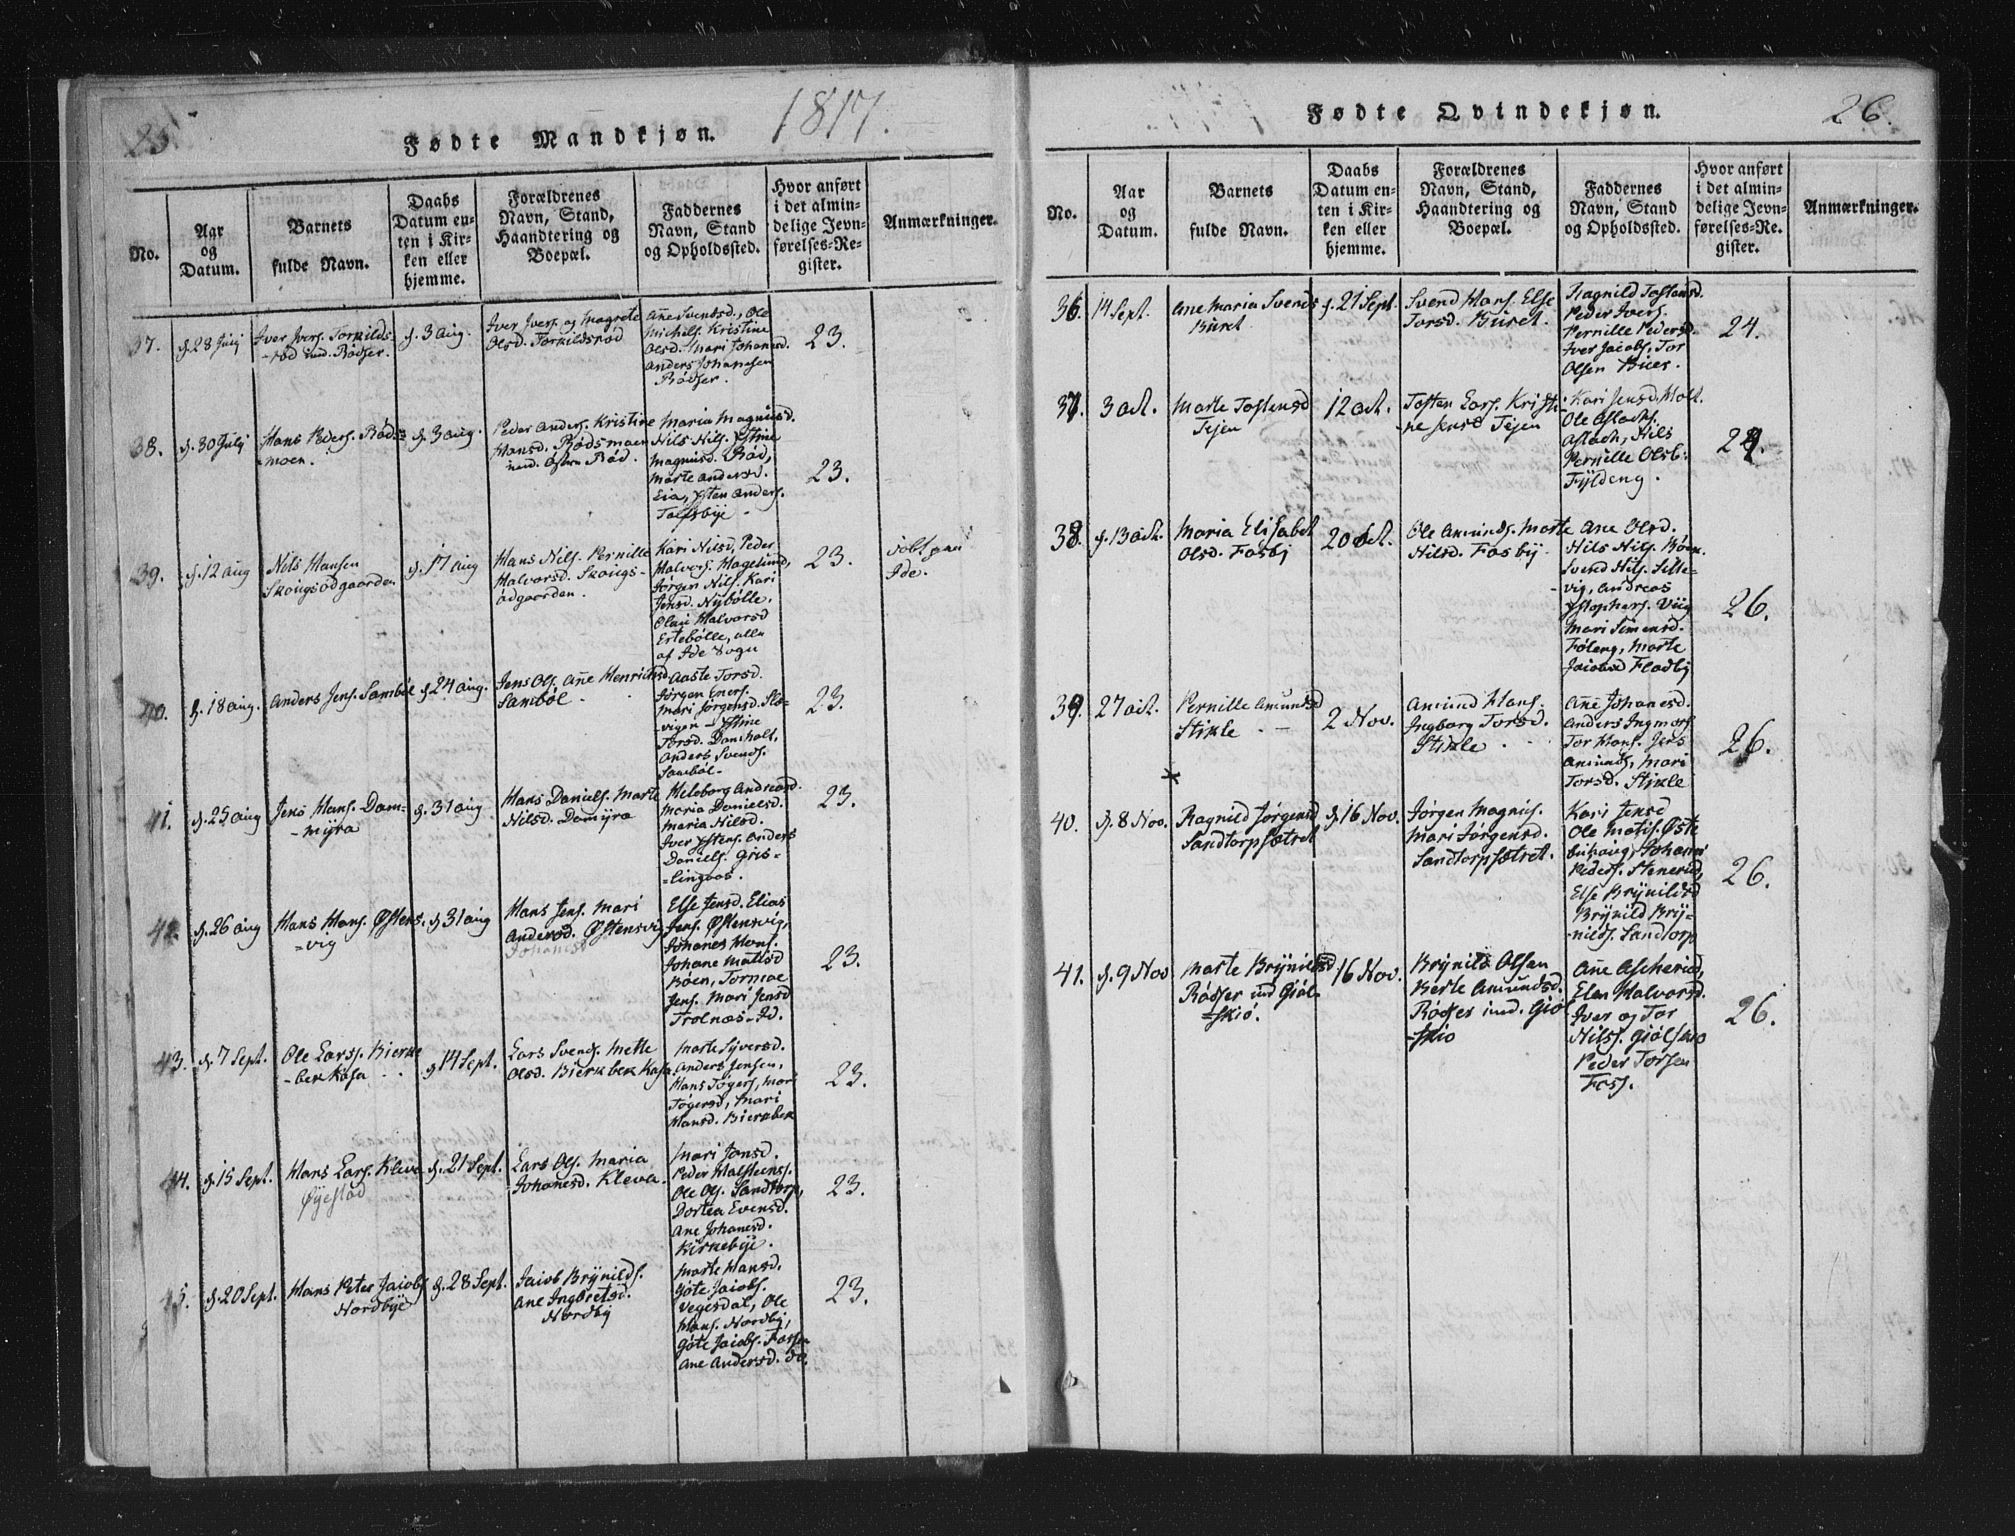 25
Fødte Mandkjøn.
1817.
No.
Aar
og
Datum.
Barnets
fulde Navn.
Daabs
Datum en-
ten i Kir-
ken eller
hjemme.
Forældrenes
Navn, Stand,
Haandtering og
Boepæl.
Faddernes
Navn, Stand
og Opholdssted.
Hvor anført
i det almin-
delige Jevn-
førelses-Re-
gister.
Anmærkninger.
37.
d. 28 Julj
Iver Ivers. Torkilds-
-rød ind. Rödser.
d. 3 aug.
Iver Ivers. og Magrete
Olsd. Torkildsrød
Añe Svendsd., Ole
Michels. Kristine
Olsd. Mari Johanesd.
Anders Johannesen
Rödser.
23.
38.
d. 30 Julj
Hans Peders. Röds-
-moen.
d. 3 aug.
Peder Anders. Kristine
Hansd. Rödsmoen
ind. Østen Röd.
Maria Magnusd.
Nils Nils. Ystine
Magnusd. Röd,
Marte Andersd.
Eia, Ysten Anders.
Tolfsbye -
23.
39.
d. 12 aug
Nils Hansen
Skougsödgaarden
d. 17 aug
Hans Nils. Pernille
Halvorsd. Skougs-
ödgaarden.
Kari Nilsd, Peder
Halvors. Hagelund,
Jörgen Nils. Kari
Jensd. Nybölle,
Olaui Halvorsd
Ertebölle, alle
af Ide Sogn
23.
döbt paa
Ide.
40.
d. 18 aug.
Anders Jens. Samböl
d. 24 aug.
Jens Ols. Añe Henrichsd.
Samböl -
Aaste Torsd.
Jörgen Eners.
Mari Jörgensd. Slæ-
-vigen - Ystine
Torsd. Damholt,
Anders Svends.
Samböl -
23.
41.
d. 25 aug
Jens Hans. Dam-
-myra
d. 31 aug
Hans Daniels. Marte
Nilsd. Damyra
Hileborg Andreasd.
Maria Danielsd.
Maria Nilsd.
Iver Ystens. Anders
Daniels. Gris-
-lingaas.
23.
42.
d. 26 aug
Hans Hans. Østens-
-vig
d. 31 aug
Hans Jens. Mari
Andersd. Østensvig
Johanisd
Else Jensd. Elias
Jens. Østensvig,
Johanes Hans.
Johane Matisd
Böen, Tormoe
Jens. Mari Jensd
Trolnæs - Id.
23.
43.
d. 7 Sept.
Ole Larss. Bierke
-bek Kasa
d. 14 Sept.
Lars Svends. Mette
Olsd. Bierkbek Kasa.
Marte Syversd.
Anders Jensen,
Hans Tögers, Mari
Tögersd, Mari
Hansd. Bierkbek
23.
44.
d. 15 Sept.
Hans Lars. Kleva
Øyestad
d. 21 Sept.
Lars Ols. Maria
Johanesd. Kleva.
Mari Jonsd.
Peder Halsteens.
Ole Ols. Sandtorp,
Dortea Evensd.
Ane Johanesd.
Kirkebye.
23.
45.
d. 20 Sept.
Hans Peter Jacobs
Nordbye
d. 28 Sept.
Jacob Brynilds.
Ane Ingbretsd.
Nordby
Marte Hansd.
Göte Jacobs.
Vegesdal, Ole
Hans. Nordby,
Göte Jacobs. Fosser
Ane Andersd. do.
23.
Fødte Qvindekjøn.
26.
No.
Aar
og
Datum.
Barnets
fulde Navn.
Daabs
Datum en-
ten i Kir-
ken eller
hjemme.
Forældrenes
Navn, Stand,
Haandtering og
Boepæl.
Faddernes
Navn, Stand
og Opholdssted.
Hvor anført
i det almin-
delige Jevn-
førelses-Re-
gister.
Anmærkninger.
36.
14 Sept.
Ane Maria Svends
Buret
d. 21 Sept.
Svend Hans. Else
Torsd. Buret.
Ragnild Tostensd.
Peder Ivers.
Pernille Pedersd.
Iver Jacobs, Tor
Olsen Buer.
24.
37.
3 oct.
Marte Tostensd
Tejen
12 oct.
Tosten Lars. Kristi-
-ne Jensd Tejen
Kari Jensd. Holt.
Ole Aslachs.
Aslach, Nils
Pernille Olsb:
Fyldeng.
24.
38.
d. 13 oct.
Maria Elisabet
Olsd. Fosby
20 oct.
Ole Amunds. Marte
Nilsd. Fosby
Ane Olsd.
Nils Nils. Böen.
Svend Nils. Sille-
-vig, Andreas
Ystophers. Viig
Mari Simensd.
Föleng, Marte
Jacobsd Fladby
26.
39.
27 oct.
Pernille Amundsd
Stikle
2 Nov.
Amund Hans.
Ingborg Torsd.
Stikle
Añe Johanesd.
Anders Ingmors.
Tor Hans. Jens
Amunds, Mari
Torsd. Stikle
26.
40.
d. 8 Nov.
Ragnild Jörgensd
Sandtorpsætret
d. 16 Nov.
Jörgen Magnus.
Mari Jörgensd.
Sandtorpsætret.
Kari Jensd
Ole Matis. Øste
Johan
Peders. Stenerød,
Else Brynildsd
Brynild Bry-
-nilds. Sandtorp
26.
41.
d. 9 Nov
Marte Brynildsd
Rödser ind Giöl-
-skiö.
16 Nov.
Brynild Olsen
Berte Amundsd.
Rödser ind. Giöl
-skiö
Añe Ascheriød,
Elen Halvorsd.
Iver og Tor
Nilss. Giölskio
Peder Torsen
Foss.
26.